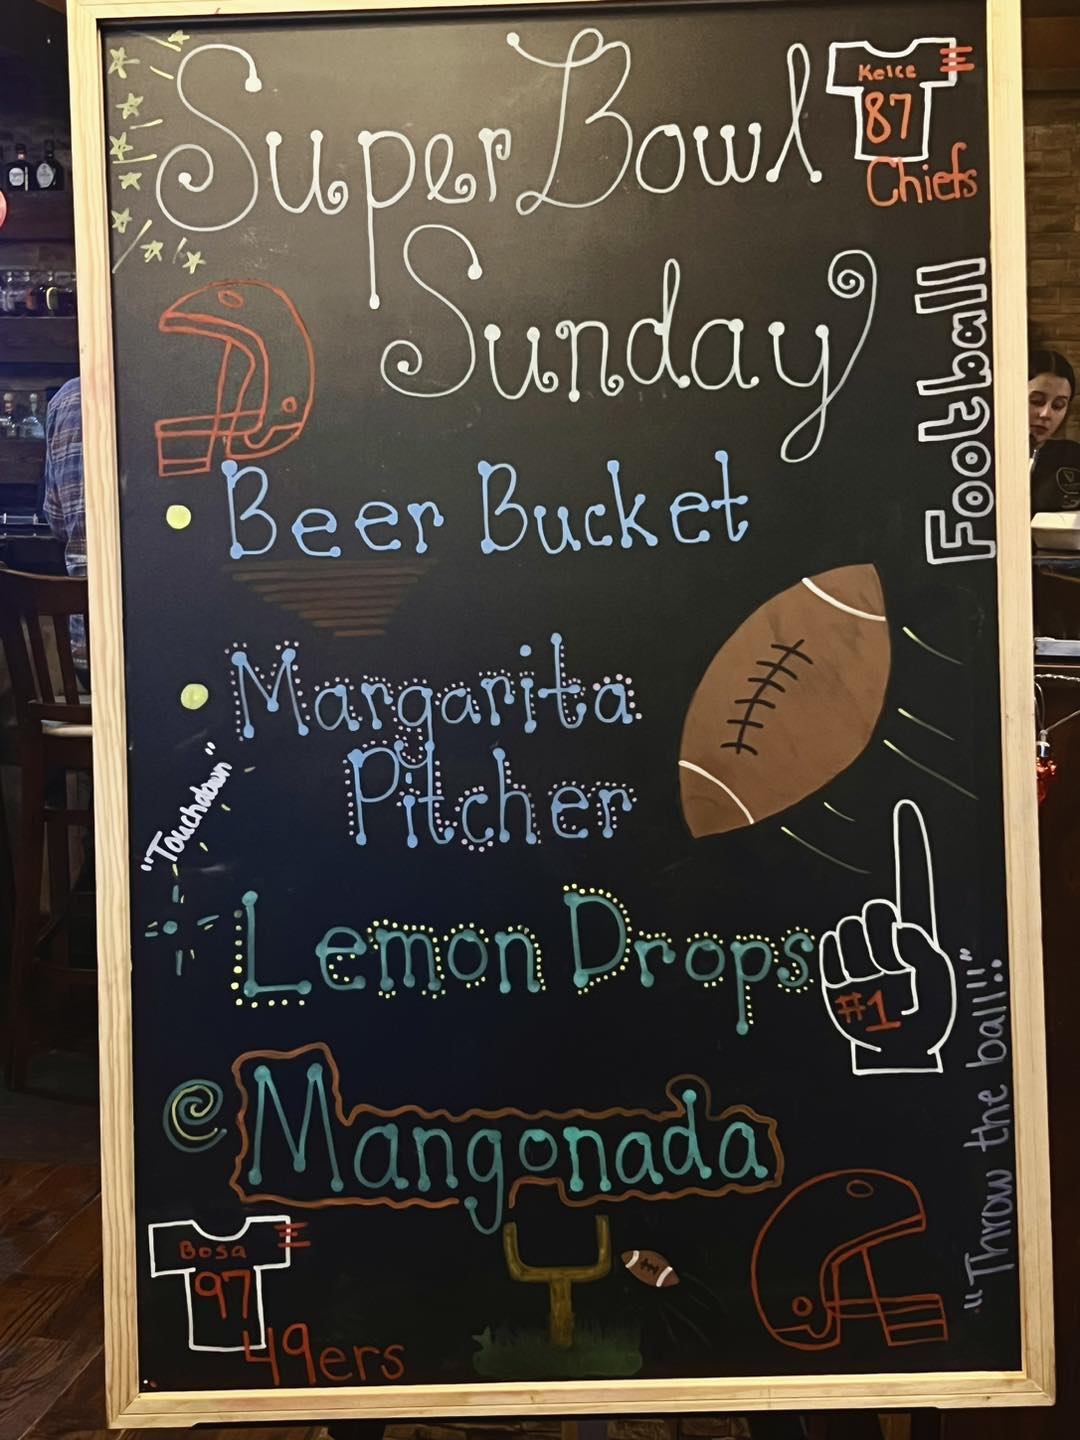 Super Bowl
Kelce
87
Chiefs
Sunday
Football
Beer Bucket
Margarita
Pitcher
"Touchdown"
Lemon Drops
#1
"Throw the ball!!"
Mangonada
Bosa
97
49ers